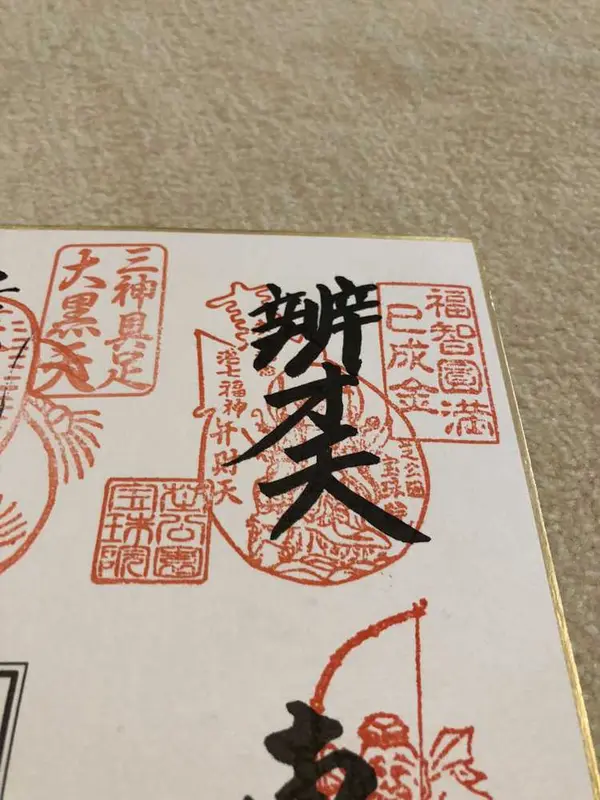 福智圓満
巳成金
辨才天
芝公園
宝珠院
港七福神弁財天
三神具足
大黒天
芝公園
宝珠院